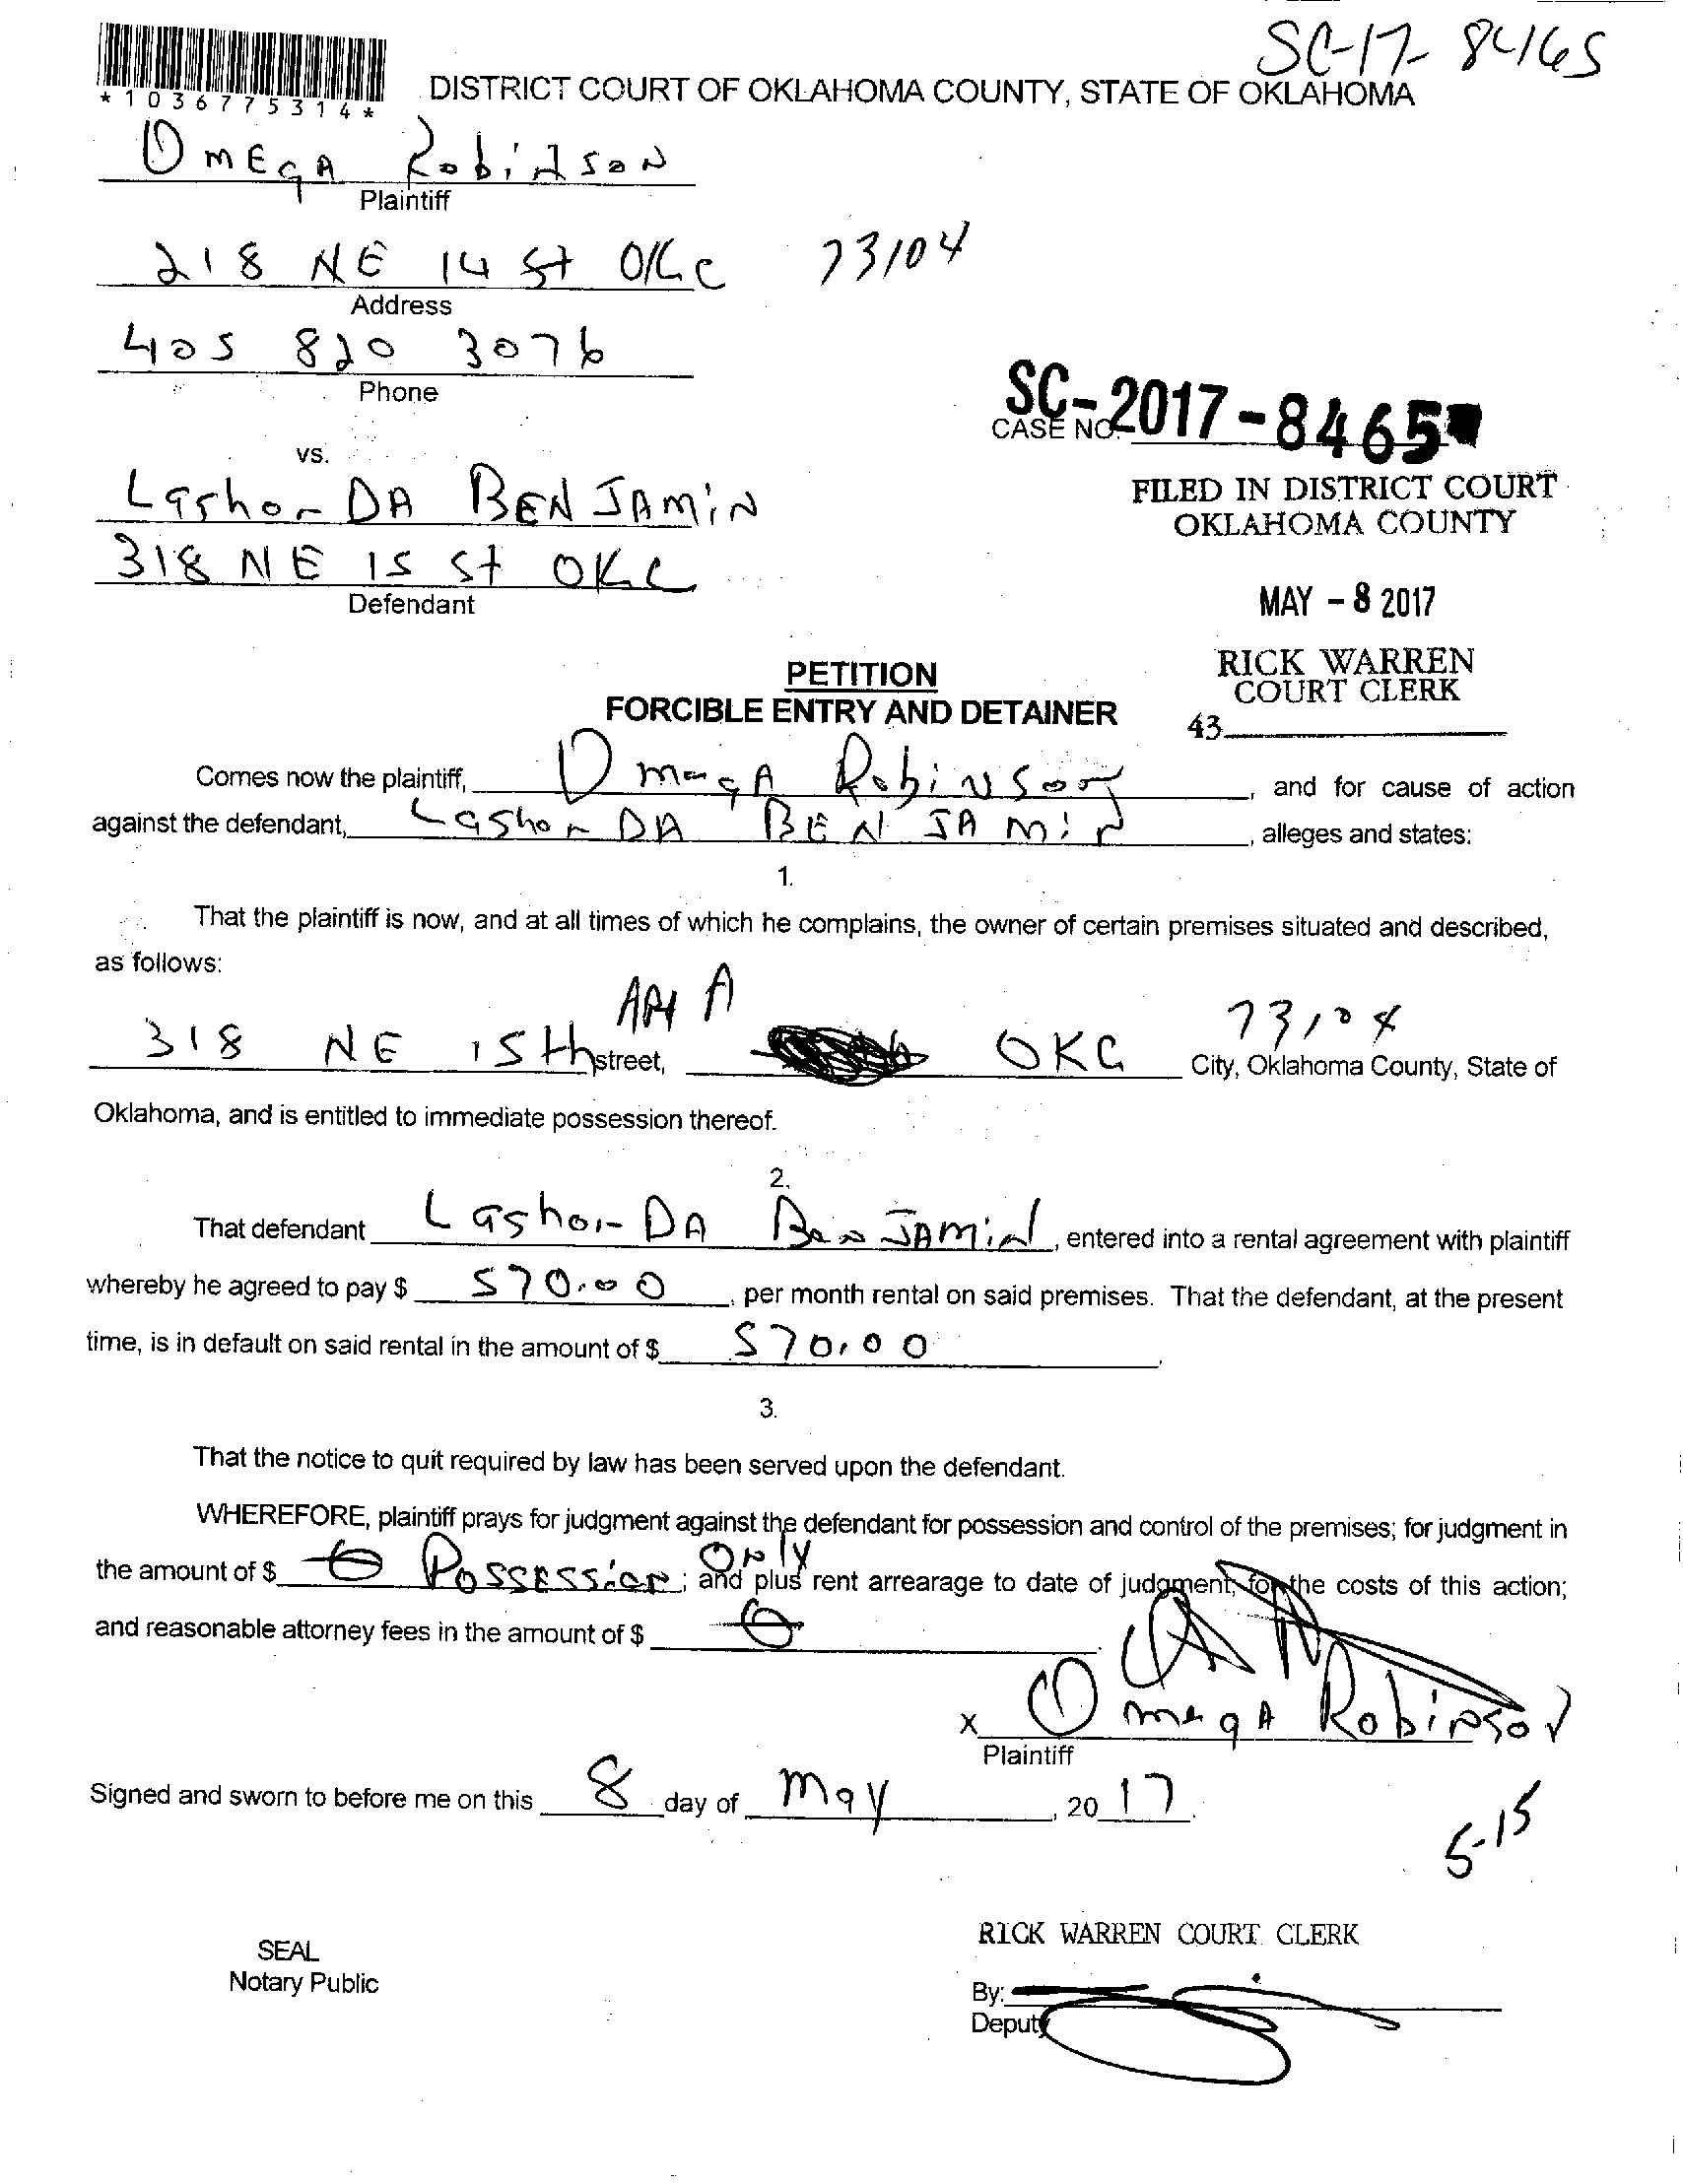 SC-17-8465
*1036775314*
DISTRICT COURT OF OKLAHOMA COUNTY, STATE OF OKLAHOMA
OMEGA RobiNSON
Plaintiff
218 NE 14 St OKC 73104
Address
405 820 3076
Phone
SC-2017-8465
CASE NO.
vs.
LashonDA BENJAMiN
318 NE 15 St OKC
Defendant
FILED IN DISTRICT COURT
OKLAHOMA COUNTY
MAY - 8 2017
RICK WARREN
COURT CLERK
43
PETITION
FORCIBLE ENTRY AND DETAINER
Comes now the plaintiff, OmegA RobiNSon, and for cause of action
against the defendant, LashonDA BENJAMiN, alleges and states:
1.
That the plaintiff is now, and at all times of which he complains, the owner of certain premises situated and described,
as follows:
Apt A
318 NE 15th street, OKC 73104 City, Oklahoma County, State of
Oklahoma, and is entitled to immediate possession thereof.
2.
That defendant LashonDA BenJAMin, entered into a rental agreement with plaintiff
whereby he agreed to pay $ 570.00, per month rental on said premises. That the defendant, at the present
time, is in default on said rental in the amount of $ 570.00.
3.
That the notice to quit required by law has been served upon the defendant.
WHEREFORE, plaintiff prays for judgment against the defendant for possession and control of the premises; for judgment in
the amount of $ 0 Possession only; and plus rent arrearage to date of judgment, for the costs of this action;
and reasonable attorney fees in the amount of $ 0.
X OmegA Robinson
Plaintiff
Signed and sworn to before me on this 8 day of May, 20 17.
5-15
RICK WARREN COURT CLERK
SEAL
Notary Public
By:
Deputy